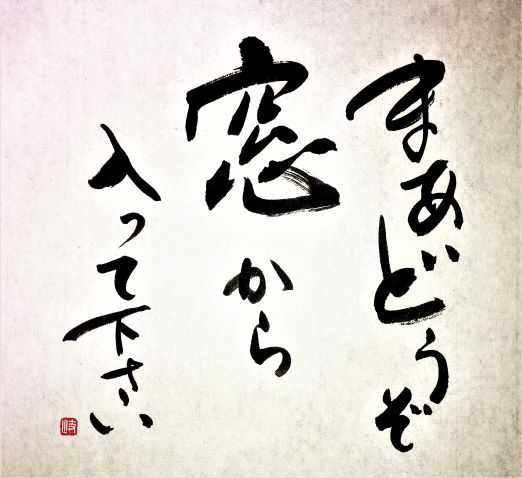 まあどうぞ
窓から
入って下さい